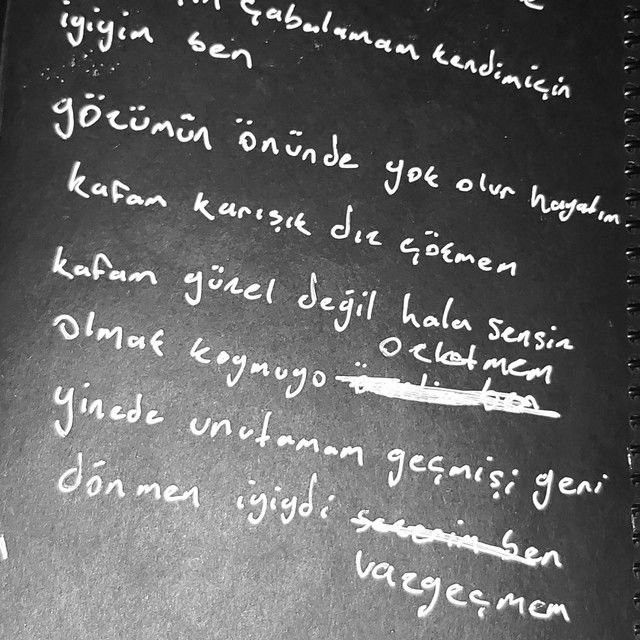 çabalamam kendimiçin
iyiyim ben
gözümün önünde yok olur hayatım
kafam karışık diz çökmem
kafam güzel değil hala sensin
özletmem
olmak koymuyo
yinede unutamam geçmişi geri
dönmen iyiydi ben
vazgeçmem